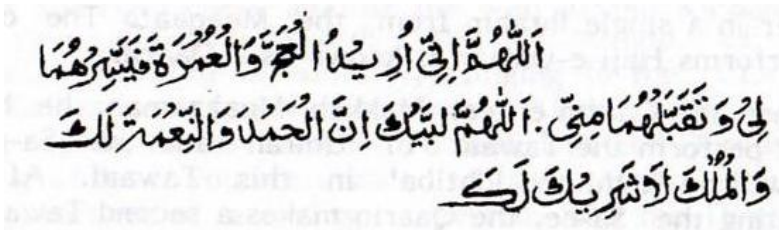 اَللّٰهُمَّ اِنِّىْ اُرِيْدُ الْحَجَّ وَالْعُمْرَةَ فَيَسِّرْهُمَا
لِىْ وَتَقَبَّلْهُمَا مِنِّىْ . اَللّٰهُمَّ لَبَّيْكَ اِنَّ الْحَمْدَ وَالنِّعْمَةَ لَكَ
وَالْمُلْكَ لَاشَرِيْكَ لَكَ